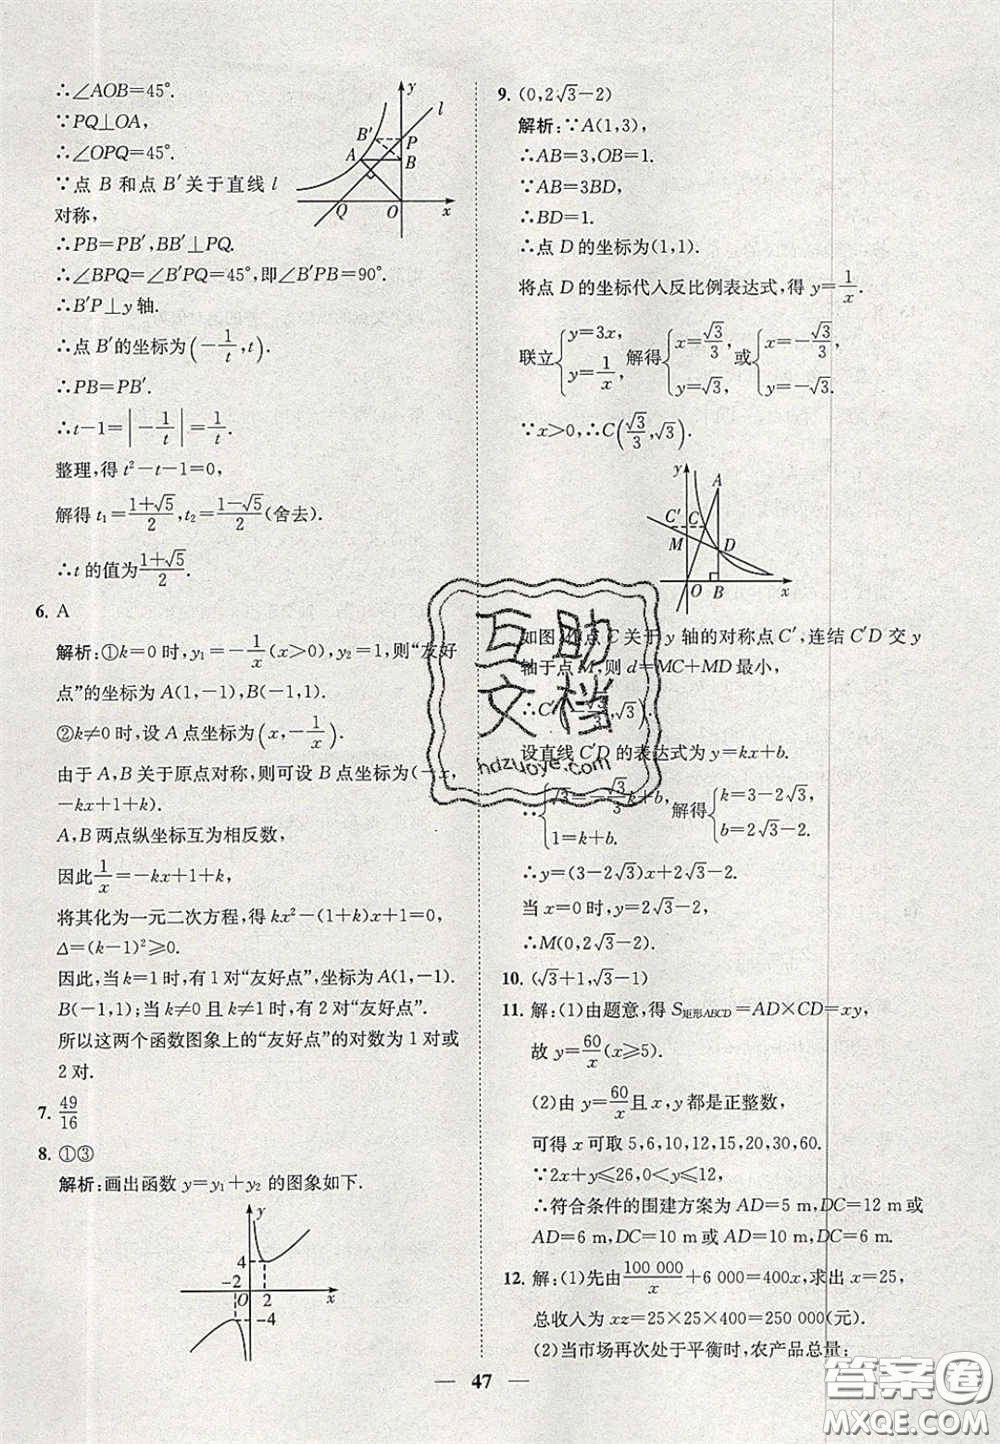 ∴∠AOB=45°.
∵PQ⊥OA,
∴∠OPQ=45°.
∵点 B 和点 B′关于直线 l
对称,
∴PB=PB′,BB′⊥PQ.
∴∠BPQ=∠B′PQ=45°,即∠B′PB=90°.
∴B′P⊥y 轴.
∴点 B′的坐标为(-1/t,t).
∴PB=PB′.
∴t-1=|-1/t|=1/t.
整理,得 t²-t-1=0,
解得 t₁=(1+√5)/2,t₂=(1-√5)/2(舍去).
∴t 的值为(1+√5)/2.
y
l
B′
P
A
B
Q
O
x
6. A
解析:①k=0 时,y₁=-1/x(x>0),y₂=1,则“友好
点”的坐标为 A(1,-1),B(-1,1).
②k≠0 时,设 A 点坐标为(x,-1/x).
由于 A,B 关于原点对称,则可设 B 点坐标为(-x,
-kx+1+k).
A,B 两点纵坐标互为相反数,
因此1/x=-kx+1+k,
将其化为一元二次方程,得 kx²-(1+k)x+1=0,
Δ=(k-1)²≥0.
因此,当 k=1 时,有 1 对“友好点”,坐标为 A(1,-1).
B(-1,1);当 k≠0 且 k≠1 时,有 2 对“友好点”.
所以这两个函数图象上的“友好点”的对数为 1 对或
2 对.
7. 49/16
8. ①③
解析:画出函数 y=y₁+y₂ 的图象如下.
y
4
-2
O
2
x
-4
9. (0,2√3-2)
解析:∵A(1,3),
∴AB=3,OB=1.
∵AB=3BD,
∴BD=1.
∴点 D 的坐标为(1,1).
将点 D 的坐标代入反比例表达式,得 y=1/x.
联立{y=3x, y=1/x, 解得{x=√3/3, y=√3,或{x=-√3/3, y=-√3.
∵x>0,∴C(√3/3,√3).
y
A
C′
C
M
D
O
B
x
如图,作点 C 关于 y 轴的对称点 C′,连结 C′D 交 y
轴于点 M,则 d=MC+MD 最小,
∴C′(-√3/3,√3).
设直线 C′D 的表达式为 y=kx+b.
∴{√3=-√3/3k+b, 1=k+b. 解得{k=3-2√3, b=2√3-2.
∴y=(3-2√3)x+2√3-2.
当 x=0 时,y=2√3-2.
∴M(0,2√3-2).
10. (√3+1,√3-1)
11. 解:(1)由题意,得 S矩形ABCD=AD×CD=xy,
故 y=60/x(x≥5).
(2)由 y=60/x且 x,y 都是正整数,
可得 x 可取 5,6,10,12,15,20,30,60.
∵2x+y≤26,0<y≤12,
∴符合条件的围建方案为 AD=5 m,DC=12 m 或
AD=6 m,DC=10 m 或 AD=10 m,DC=6 m.
12. 解:(1)先由100 000/x+6 000=400x,求出 x=25,
总收入为 xz=25×25×400=250 000(元).
(2)当市场再次处于平衡时,农产品总量:
47
互助
文档
hdzuoye.com
答案圈
MXQE.COM